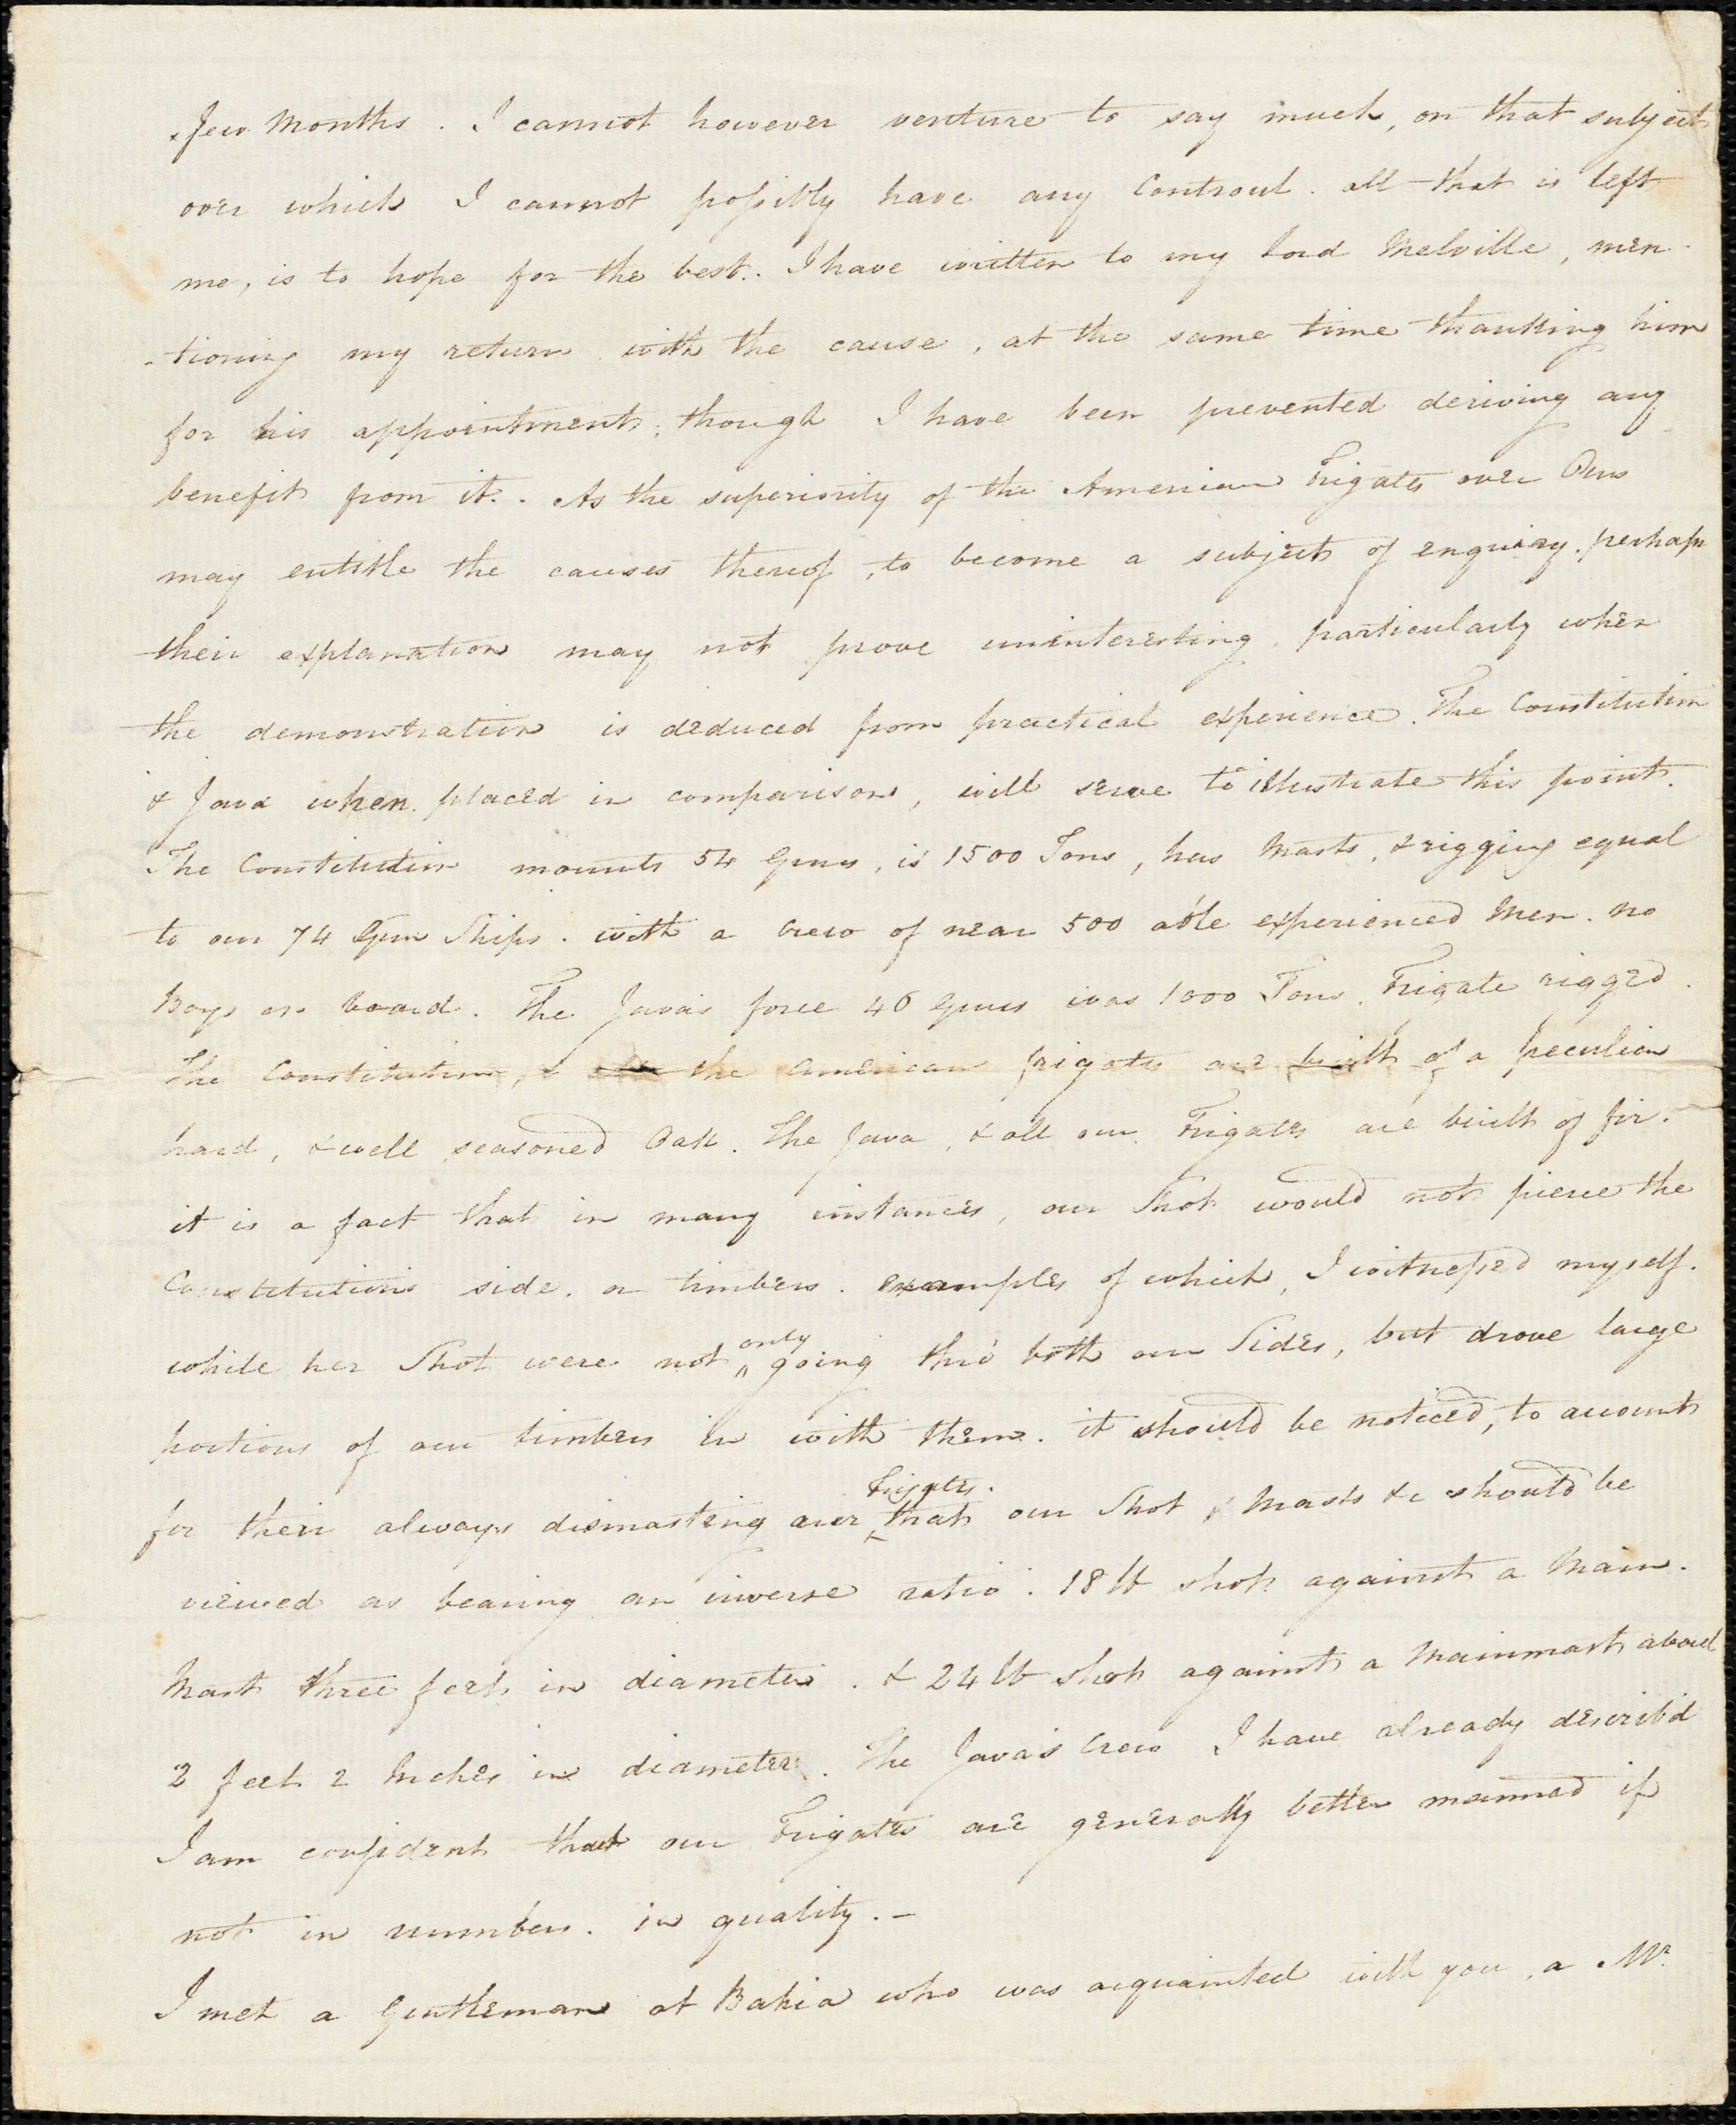 few Months. I cannot however venture to say much, on that subject
over which I cannot poſsibly have any Controul. all that is left
me, is to hope for the best. I have written to my Lord Melville, men-
-tioning my return with the cause, at the same time thanking him
for his appointment, though I have been prevented deriving any
benefit from it. As the superiority of the American Frigates over Ours
may entitle the causes thereof, to become a subject of enquiry, perhaps
their explanation may not prove uninteresting, particularly when
the demonstration is deduced from practical experience. The Constitution
& Java when placed in comparison, will serve to illustrate this point.
The Constitution mounts 54 Guns, is 1500 Tons, has Masts, & rigging equal
to our 74 Gun Ships. with a Crew of near 500 able experienced Men. no
Boys on board. The Java's force 46 Guns was 1000 Tons. Frigate rigged.
The Constitution, & the American frigates are built of a peculiar
hard, & well seasoned Oak. The Java, & all our Frigates are built of fir.
it is a fact that in many instances, our Shot would not pierce the
Constitution's side, or timbers. examples of which, I witneſsed myself.
while her Shot were not only going thro' both our Sides, but drove large
portions of our timbers in with them. it should be noticed, to account
for their always dismasting our Frigates. that our Shot & Masts &c should be
viewed as bearing an inverse ratio. 18 lb shot against a Main-
Mast three feet in diameter. & 24 lb shot against a Mainmast about
2 feet 2 Inches in diameter. The Java's Crew I have already describ'd
I am confident that our Frigates are generally better manned if
not in number. in quality. -
I met a Gentleman at Bahia who was acquainted with you, a Mr.